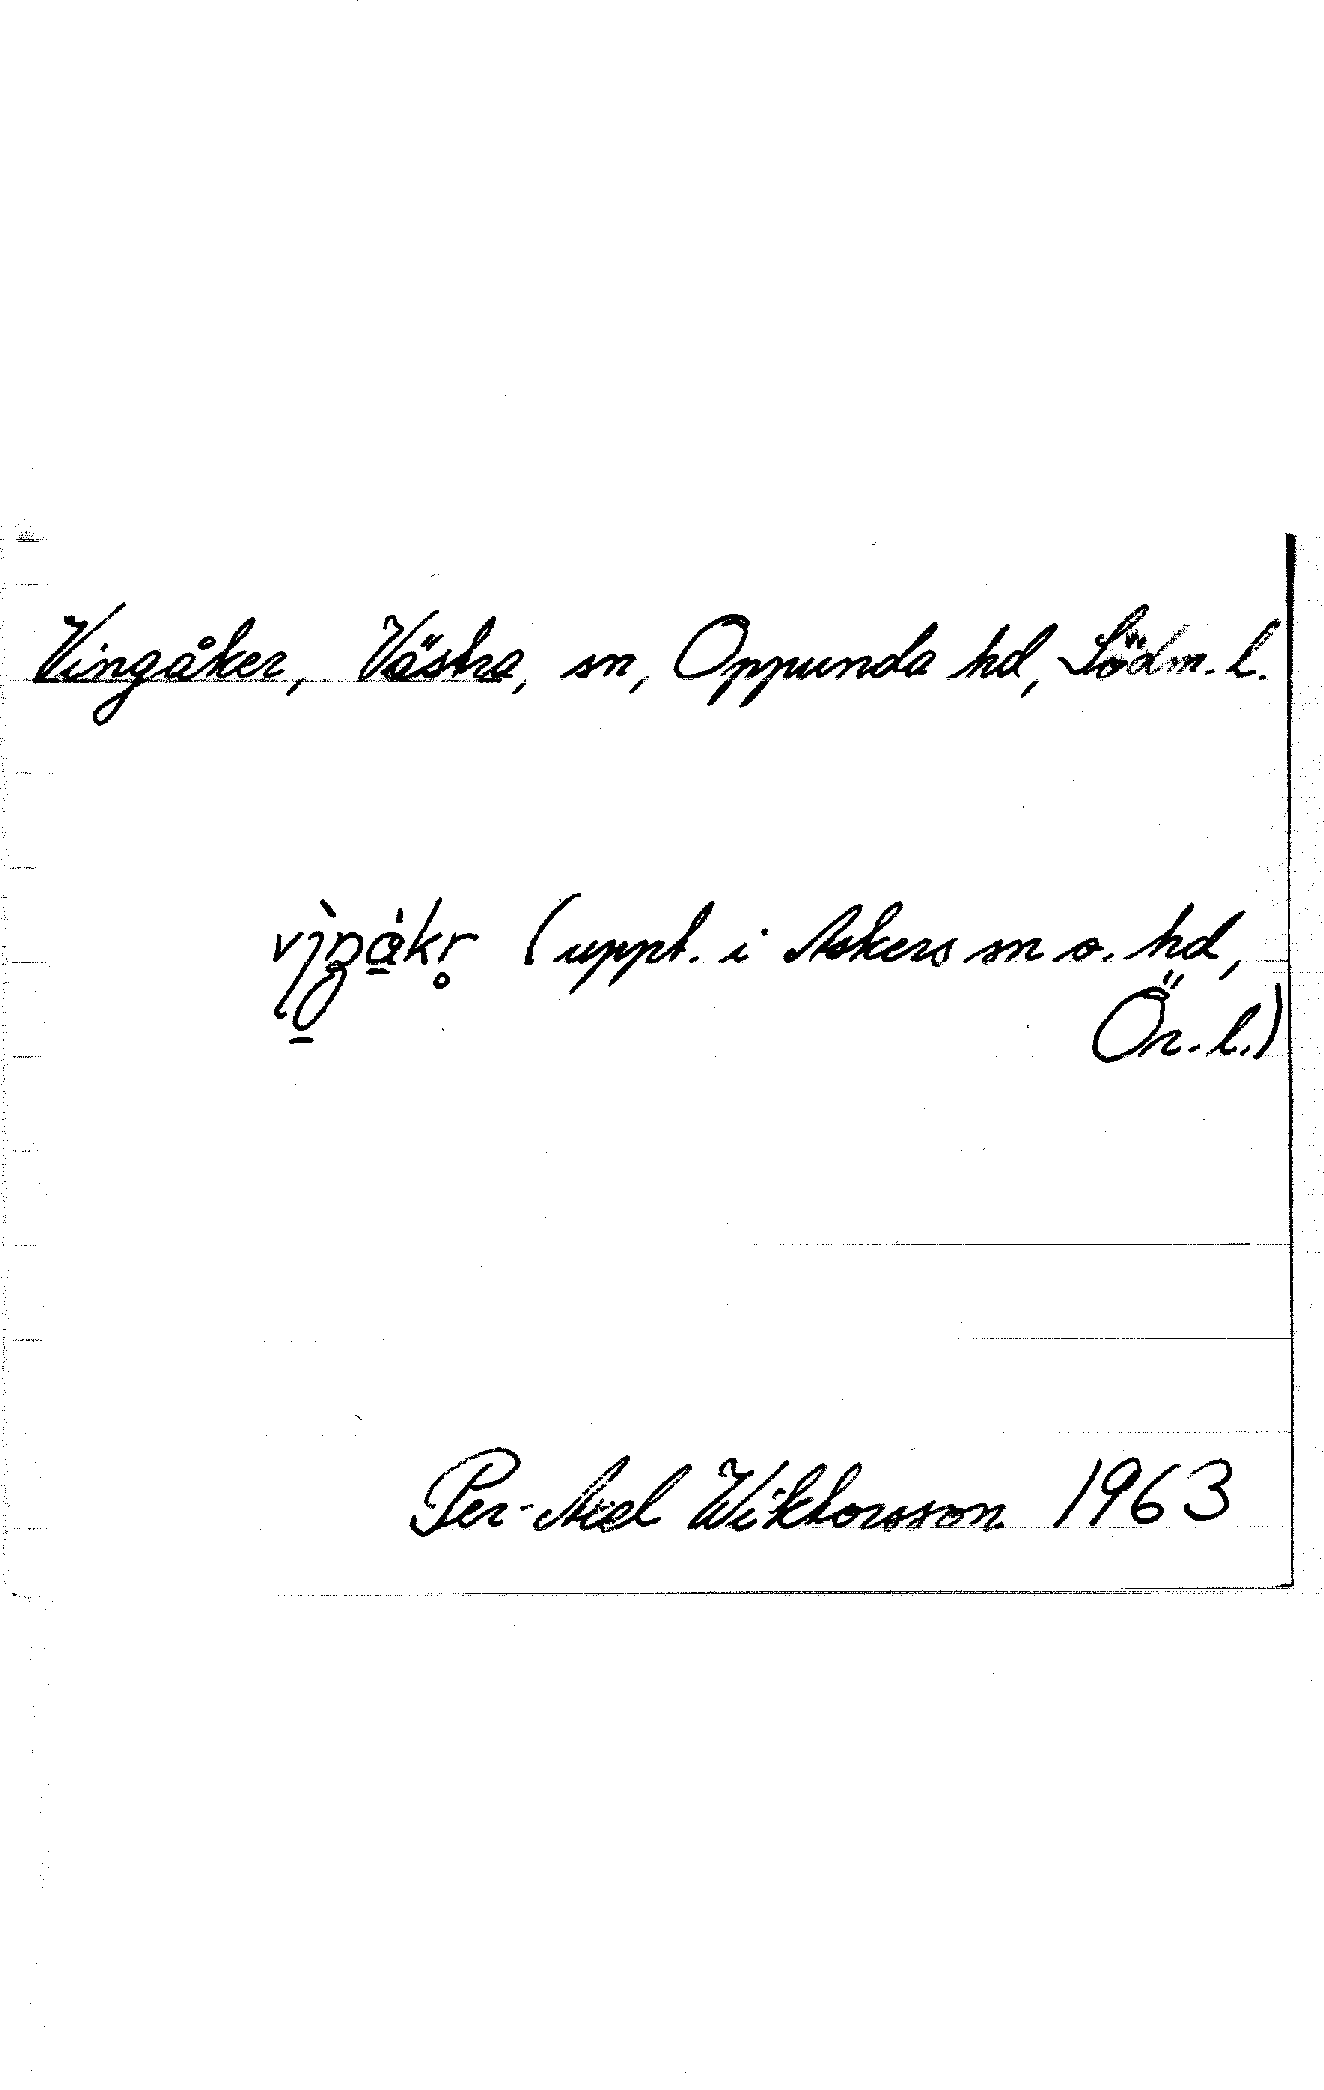 Vingåker, Västra, sn, Oppunda hd, Södm. l.
(uppt. i Askers sn o. hd,
Ör. l.)
Per-Axel Wiktorsson 1963